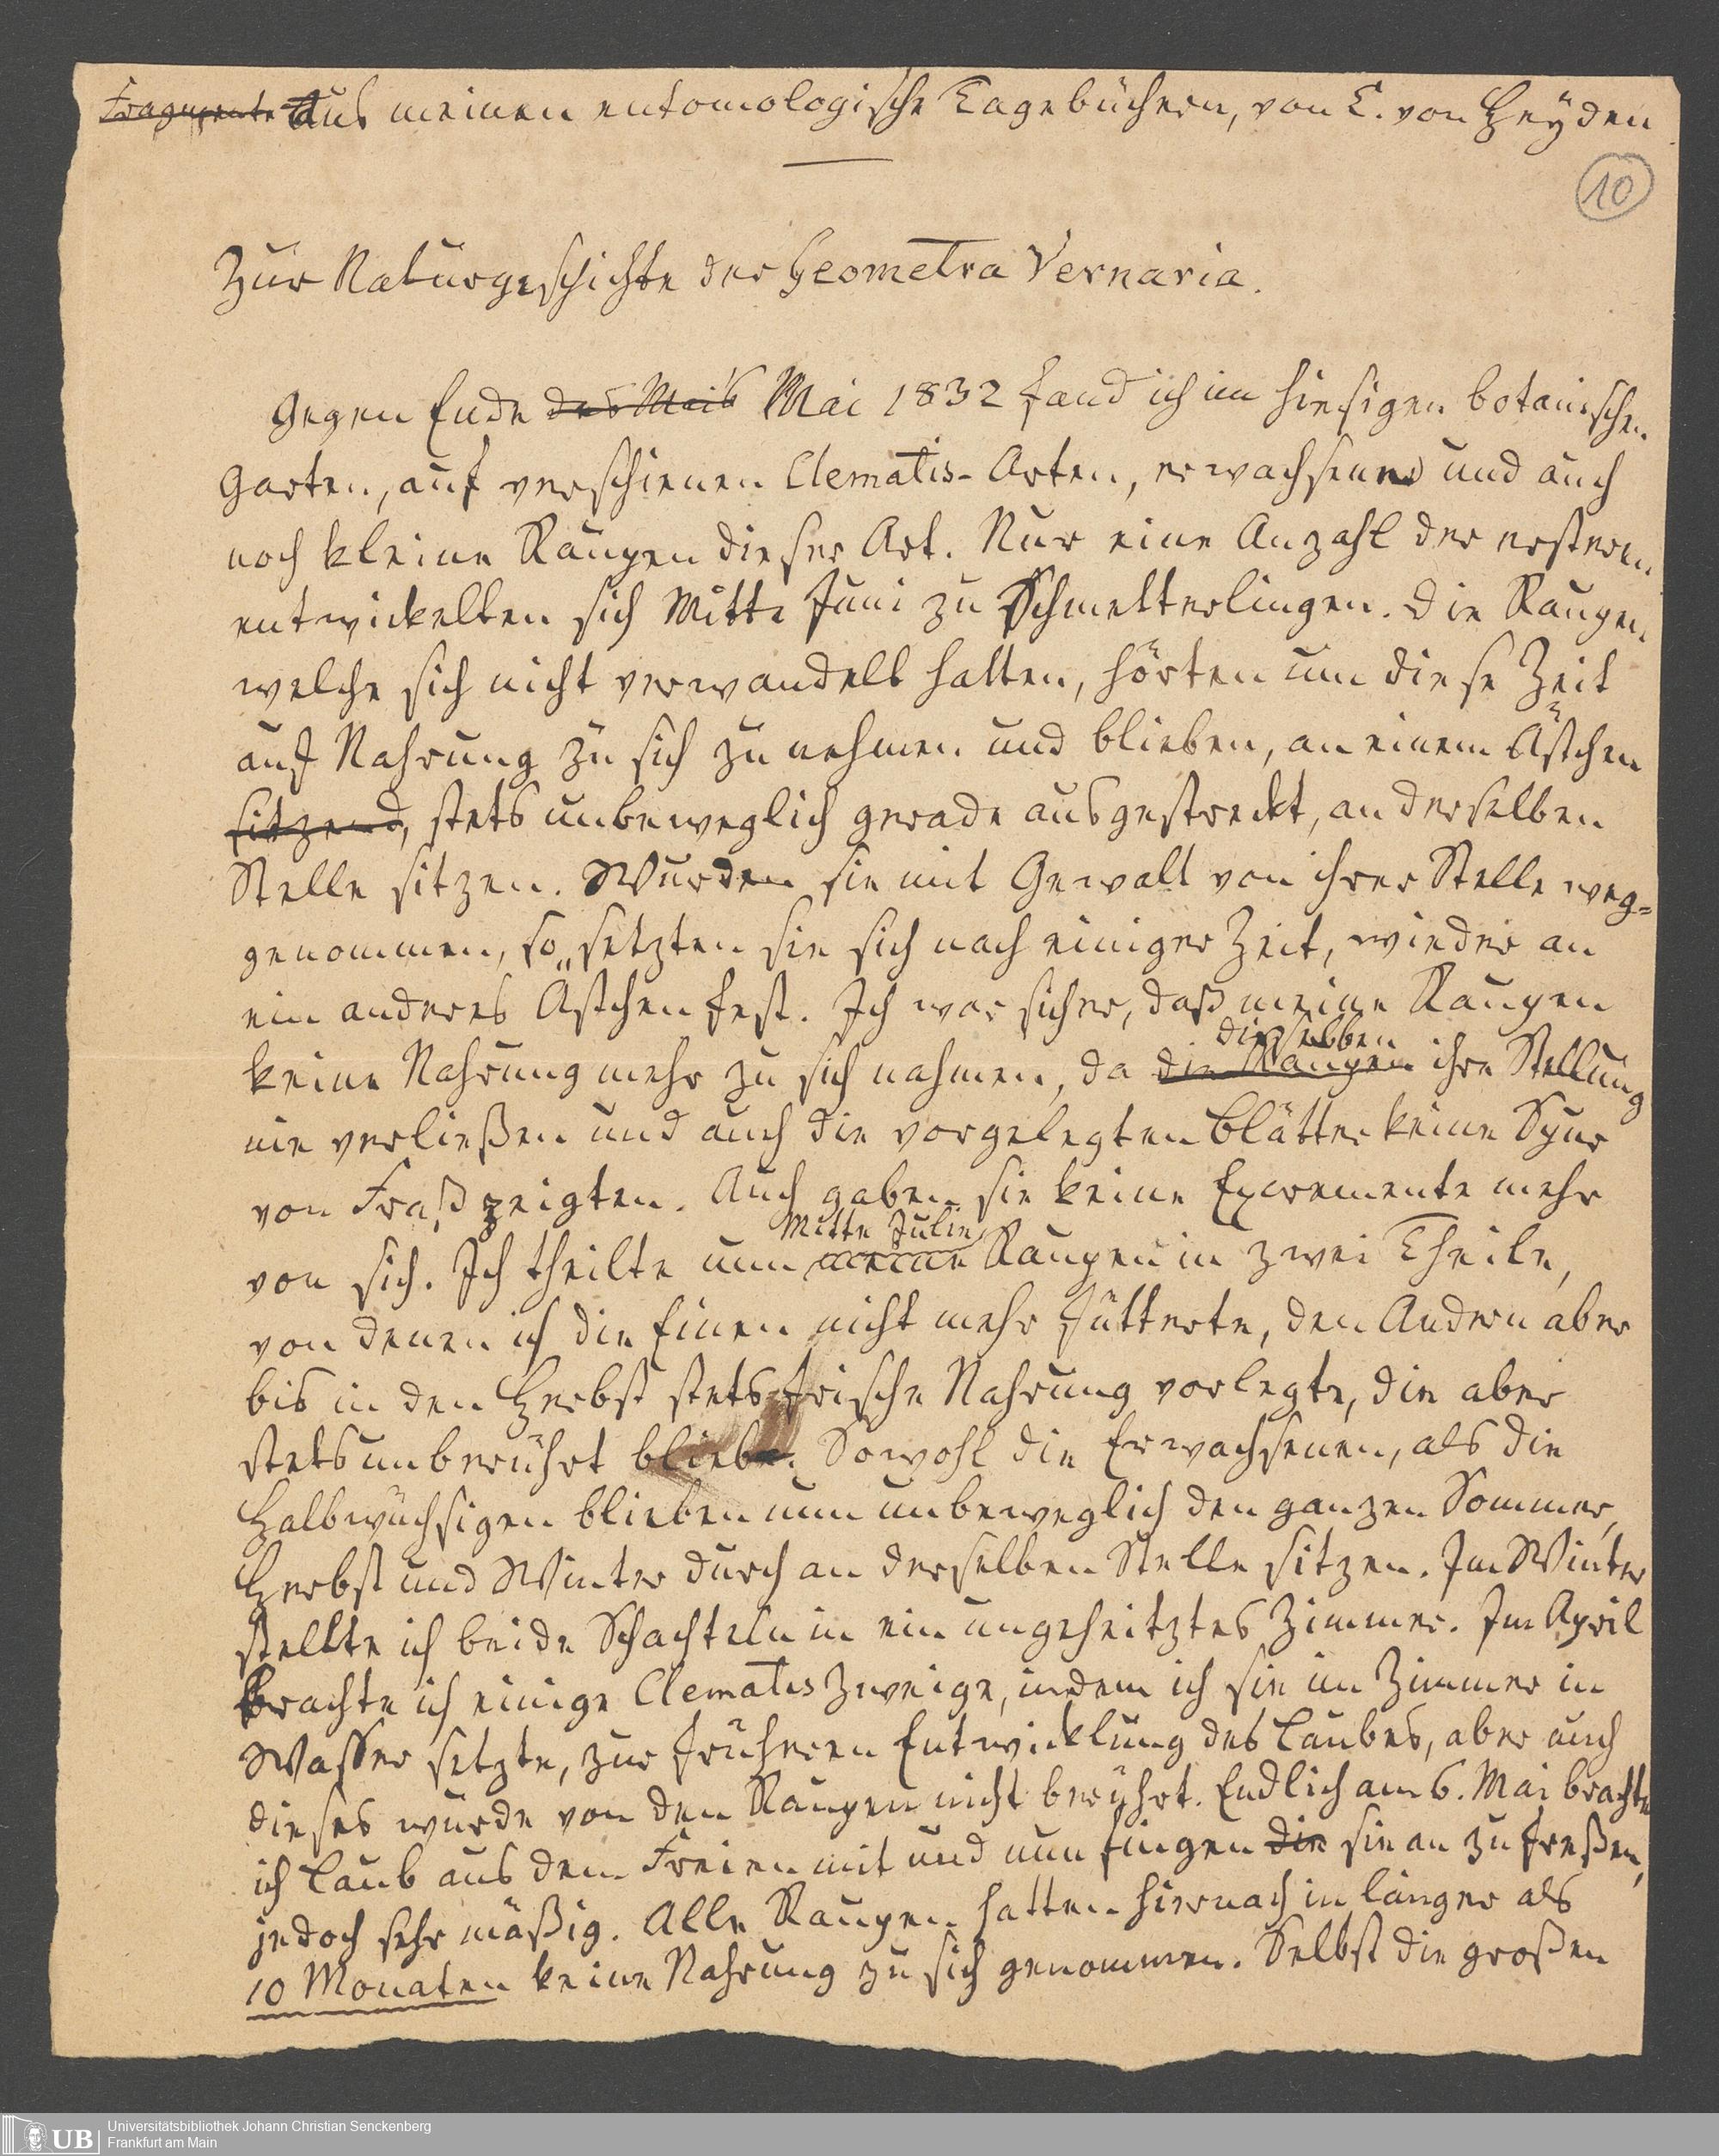 Fragmente Aus meinen entomologische Tagebüchern, von C. von Heyden
10
Zur Naturgeschichte der Geometra Vernaria.
Gegen Ende des Mai's Mai 1832 fand ich im hiesigen botanischen
Garten, auf verschienen Clematis-Arten, erwachsene und auch
noch kleine Raupen dieser Art. Nur eine Anzahl der erstern
entwickelten sich Mitte Juni zu Schmetterlingen. Die Raupen
welche sich nicht verwandelt hatten, hörten um diese Zeit
auf Nahrung zu sich zu nehmen und blieben, an einem Ästchen
sitzend, stets unbeweglich gerade ausgestreckt, an derselben
Stelle sitzen. Wurden sie mit Gewalt von ihrer Stelle weg-
genommen, so setzten sie sich nach einiger Zeit, wieder an
ein anderes Ästchen fest. Ich war sicher, daß meine Raupen
dieselben
keine Nahrung mehr zu sich nahmen, da die Raupen ihre Stellung
nie verließen und auch die vorgelegten Blätter keine Spur
von Fraß zeigten. Auch gaben sie keine Excremente mehr
Mitte Julie
von sich. Ich theilte nun meine Raupen in zwei Theile,
von denen ich die Einen nicht mehr fütterte, den Andern aber
bis in den Herbst stets frische Nahrung vorlegte, die aber
stets unberührt bliebe. Sowohl die Erwachsenen, als die
Halbwüchsigen blieben nun unbeweglich den ganzen Sommer,
Herbst und Winter durch an derselben Stelle sitzen. Im Winter
stellte ich beide Schachteln in ein ungeheitztes Zimmer. Im April
brachte ich einige Clematis Zweige, indem ich sie im Zimmer in
Wasser setzte, zur früheren Entwicklung des Laubes, aber auch
dieses wurde von den Raupen nicht berührt. Endlich am 6. Mai brachte
ich Laub aus dem Freien mit und nun fingen die sie an zu freßen,
jedoch sehr mäßig. Alle Raupen hatten hiernach in länger als
10 Monaten keine Nahrung zu sich genommen. Selbst die großen
UB Universitätsbibliothek Johann Christian Senckenberg
Frankfurt am Main